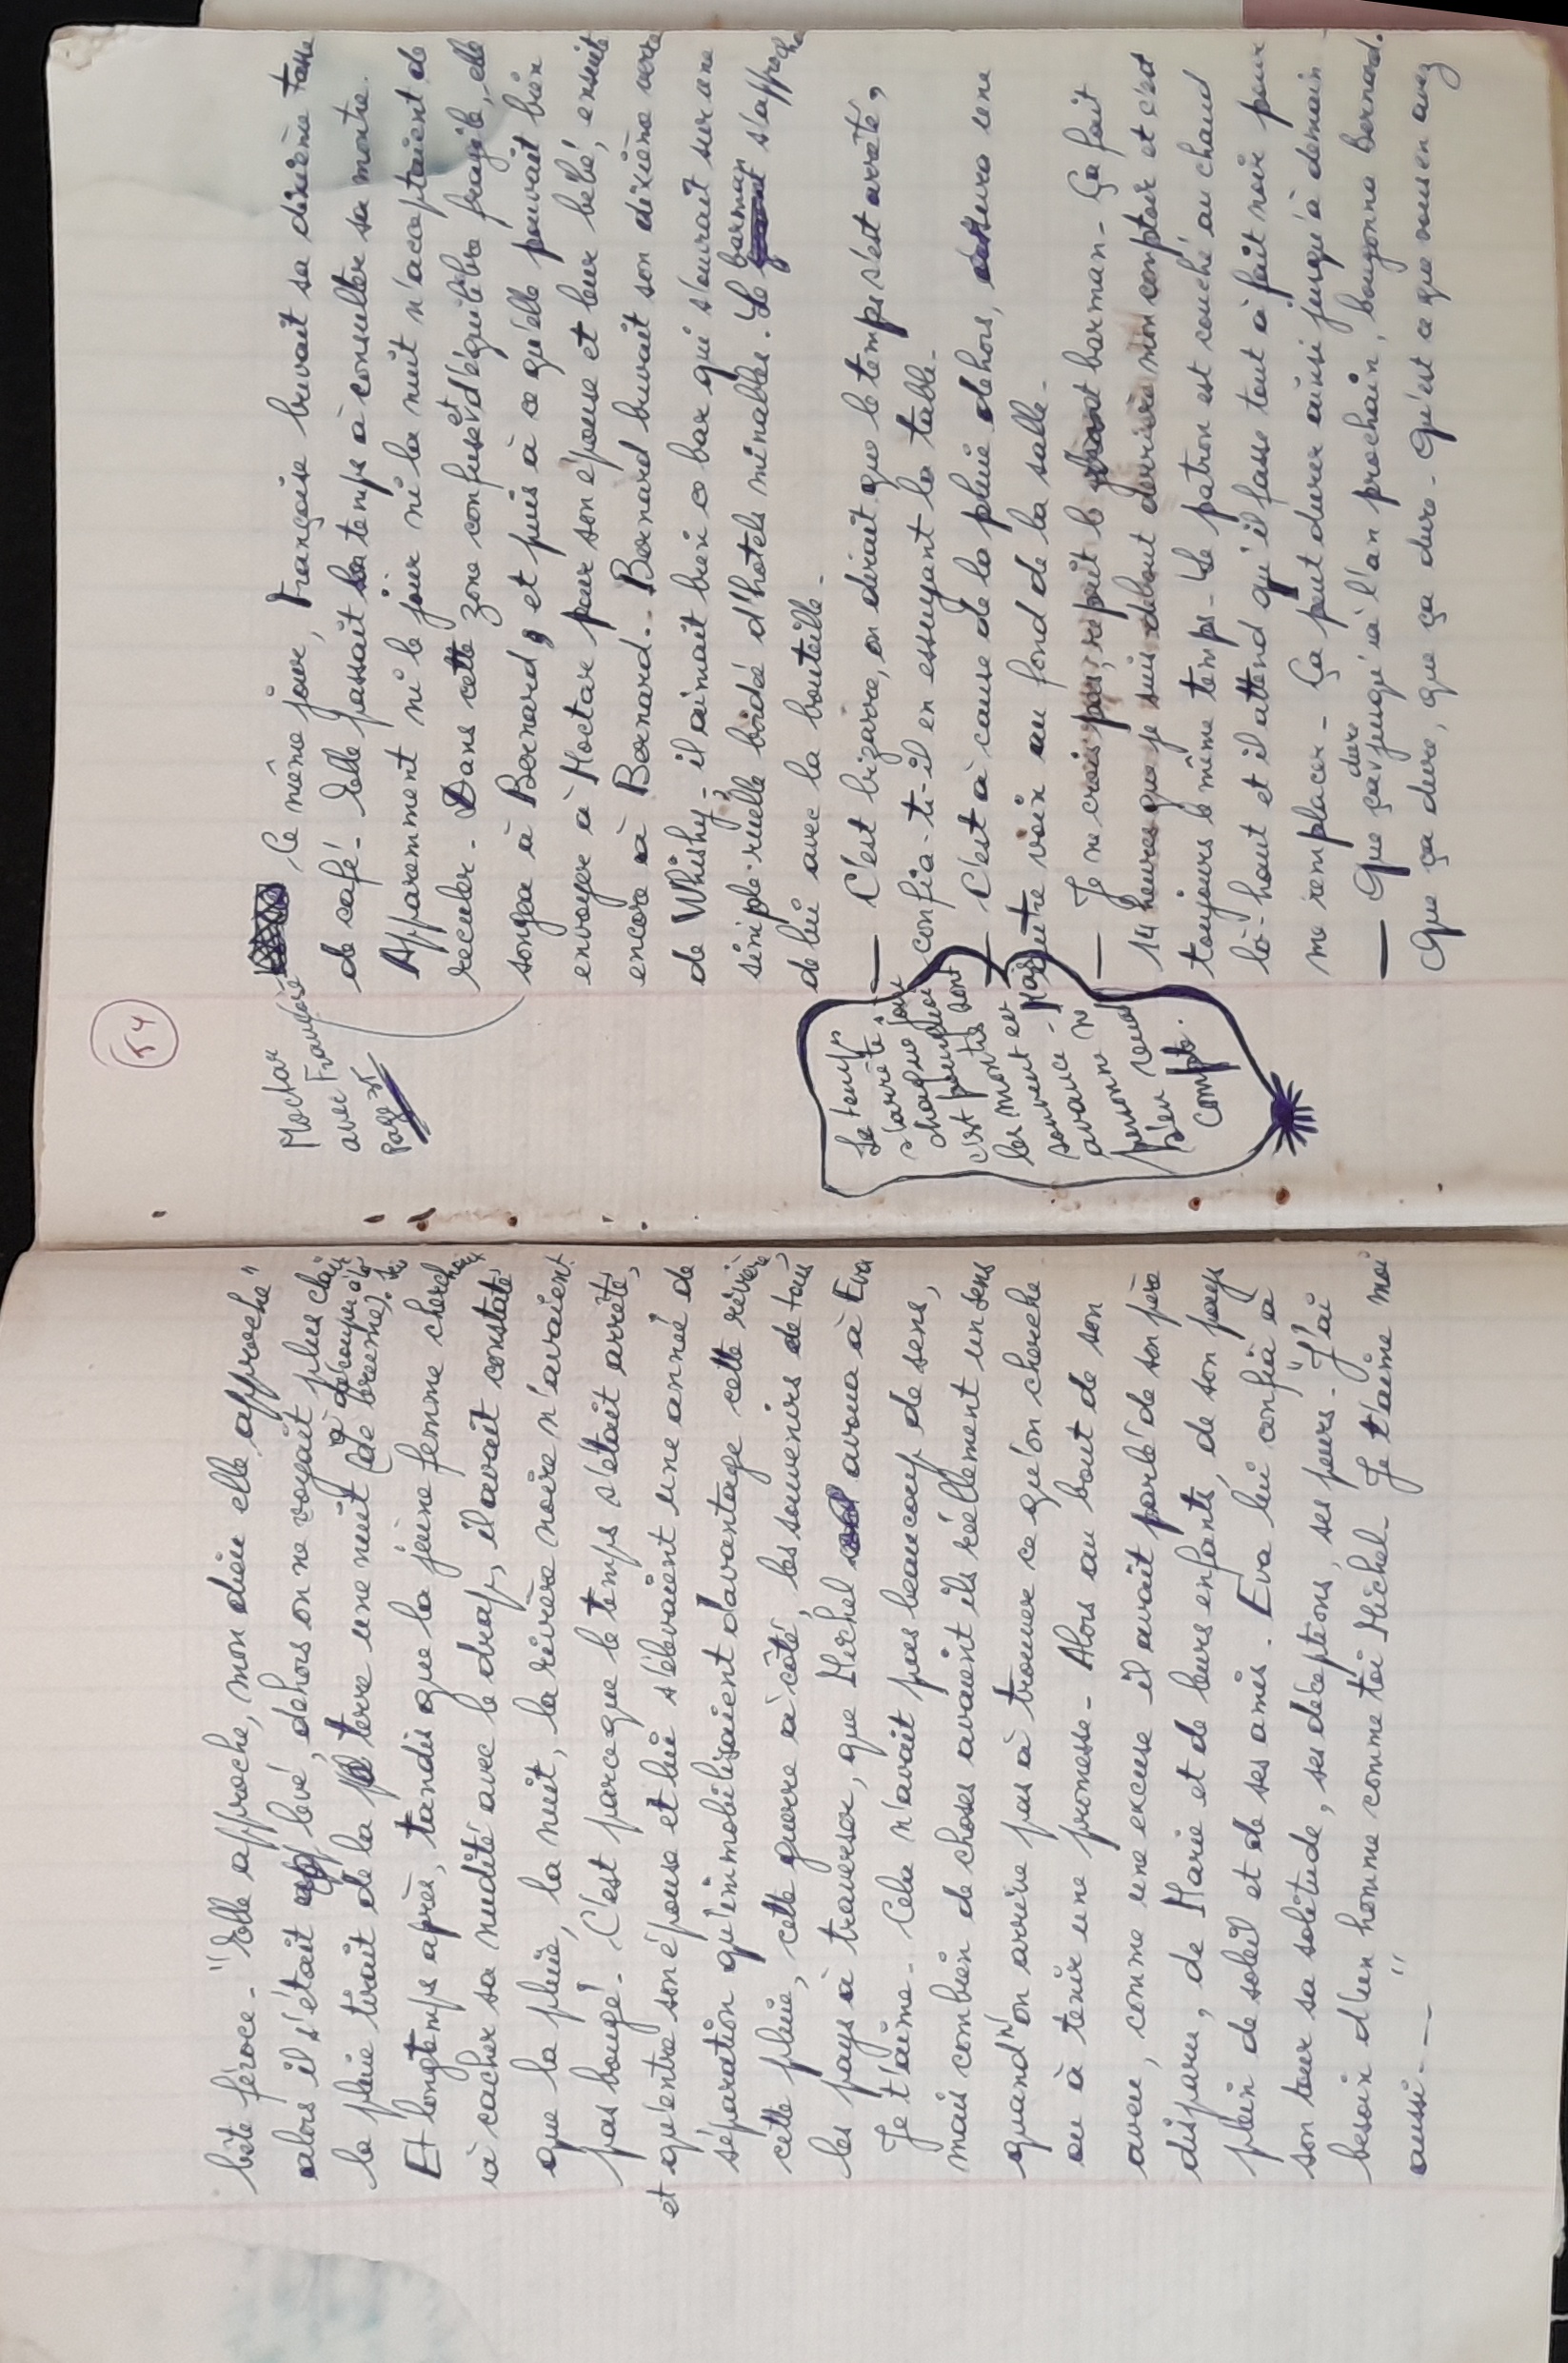 bête féroce - "Elle approche, mon dieu elle approche"
alors il s'était levé, dehors on ne voyait plus clair
la pluie tirait de la terre une nuit (de brume). à découper à la
Et longtemps après, tandis que la jeune femme cherchait
à cacher sa nudité avec le drap, il avait constaté
que la pluie, la nuit, la rivière noire n'avaient
pas bougé. C'est parceque le temps s'était arrêté,
et qu'entre son épouse et lui s'élevaient une année de
séparation qu'immobilisaient davantage cette rivière,
cette pluie, cette guerre à côté, les souvenirs de tous
les pays à traverser, que Michel avoua à Eva
Je t'aime - Cela n'avait pas beaucoup de sens,
mais combien de choses avaient ils réellement un sens
quand on n'arrive pas à trouver ce qu'on cherche
ou à tenir une promesse - Alors au bout de son
aveu, comme une excuse il avait parlé de son père
disparu, de Marie et de leurs enfants, de son pays
plein de soleil et de ses amis. Eva lui confia à
son tour sa solitude, ses déceptions, ses peurs - "J'ai
besoin d'un homme comme toi Michel - Je t'aime moi
aussi - - "
54
Moctar
avec Françoise
page 35
le même jour, Françoise buvait sa dixième tasse
de café - Elle passait son temps à consulter sa montre.
Apparemment ni le jour ni la nuit n'acceptaient de
reculer - Dans cette zone confuse et d'équilibre fragile, elle
songea à Bernard, et puis à ce qu'elle pouvait bien
envoyer à Moctar pour son épouse et leur bébé, ensuite
encore à Bernard.. Bernard buvait son dixième verre
de Whisky - il aimait bien ce bar qui s'ouvrait sur une
simple ruelle bordée d'hotels minables. Le barman s'approcha
de lui avec la bouteille -
— C'est bizarre, on dirait que le temps s'est arrêté,
confia-t-il en essuyant la table -
— C'est à cause de la pluie dehors, assura une
autre voix au fond de la salle -
— Je ne crois pas, reprit le barman - ça fait
14 heures que je suis debout derrière mon comptoir et c'est
toujours le même temps - Le patron est couché au chaud
là-haut et il attend qu'il fasse tout à fait noir pour
me remplacer - ça peut durer ainsi jusqu'à demain
— Que ça dure jusqu'à l'an prochain, bougonna bernard.
Que ça dure, que ça dure - Qu'est ce que vous en avez
Le temps
s'arrête
chaque jour
c'est pourquoi
les montres sont
souvent en
avance - Mais
personne ne
s'en rend
compte.